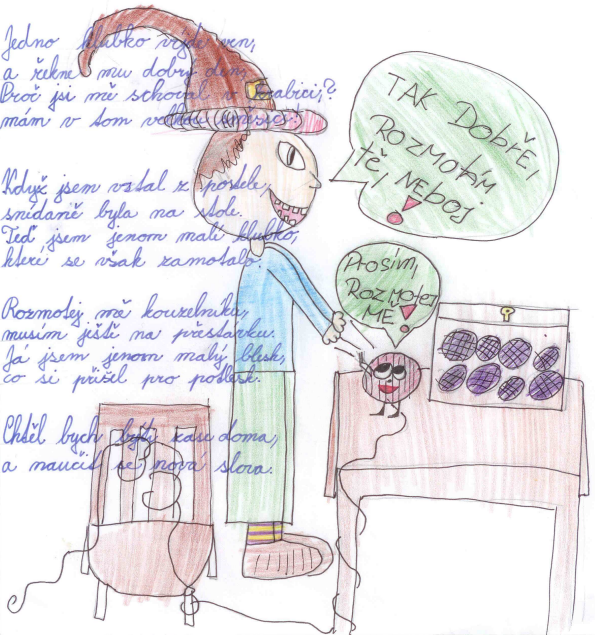 Jedno klubko vyjde ven,
a řekne mu dobrý den,
Proč jsi mě schoval v krabici,?
mám v tom velkou směsici!

Když jsem vstal z postele,
snídaně byla na stole.
Teď jsem jenom malí klubko,
které se však zamotalo.

Rozmotej mě kouzelníku,
musím ještě na přestávku.
Já jsem jenom malý blesk,
co si přišel pro potlesk.

Chtěl bych být zase doma,
a naučit se nová slova.

TAK DOBŘE,
ROZMOTÁM
tě, NEBOJ!

Prosím,
ROZMOTEJ
MĚ!